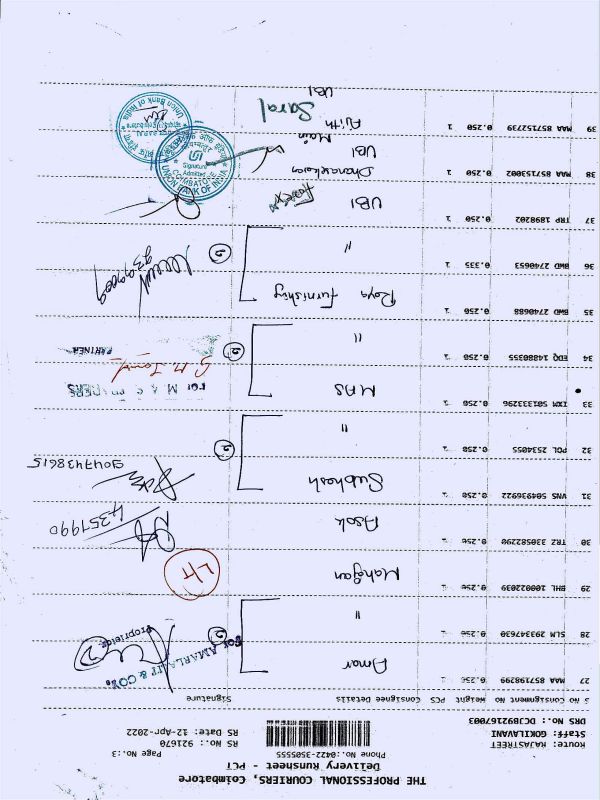 THE PROFESSIONAL COURIERS, Coimbatore
Delivery Runsheet - PCT
Phone No.:0422-3505555
Page No.:3
Route: RAJASTREET
RS No.: 921670
Staff: GOKILAVANI
RS Date: 12-Apr-2022
DRS No.: DCJ892167003
S No Consignment No Weight PCS Consignee Details Signature
27 MAA 857198299 0.250 1 Amar
For AMARLAL & CO.,
Proprietor
28 SLM 293347630 0.250 1 "
2
29 BHL 100022039 0.250 1 Mahajan
30 TRZ 330582290 0.250 1 Asok
4351990
31 VNS 504936922 0.250 1 Subhash
9047438615
32 POL 2534055 0.250 1 "
2
33 IXM 501333296 0.250 1 MAS
For M A S
34 EDQ 14880355 0.250 1 "
2
PARTNER
35 BWD 2740688 0.250 1 Roya Furnishing
36 BWD 2740653 0.335 1 "
2
37 TRP 1898202 0.250 1 UBI
38 MAA 857153002 0.250 1 Dhanasekaran
UBI
Main
UNION BANK OF INDIA
COIMBATORE
Signature
Admitted
39 MAA 857152739 0.250 1 Ajith Saral
UBI
Union Bank of India